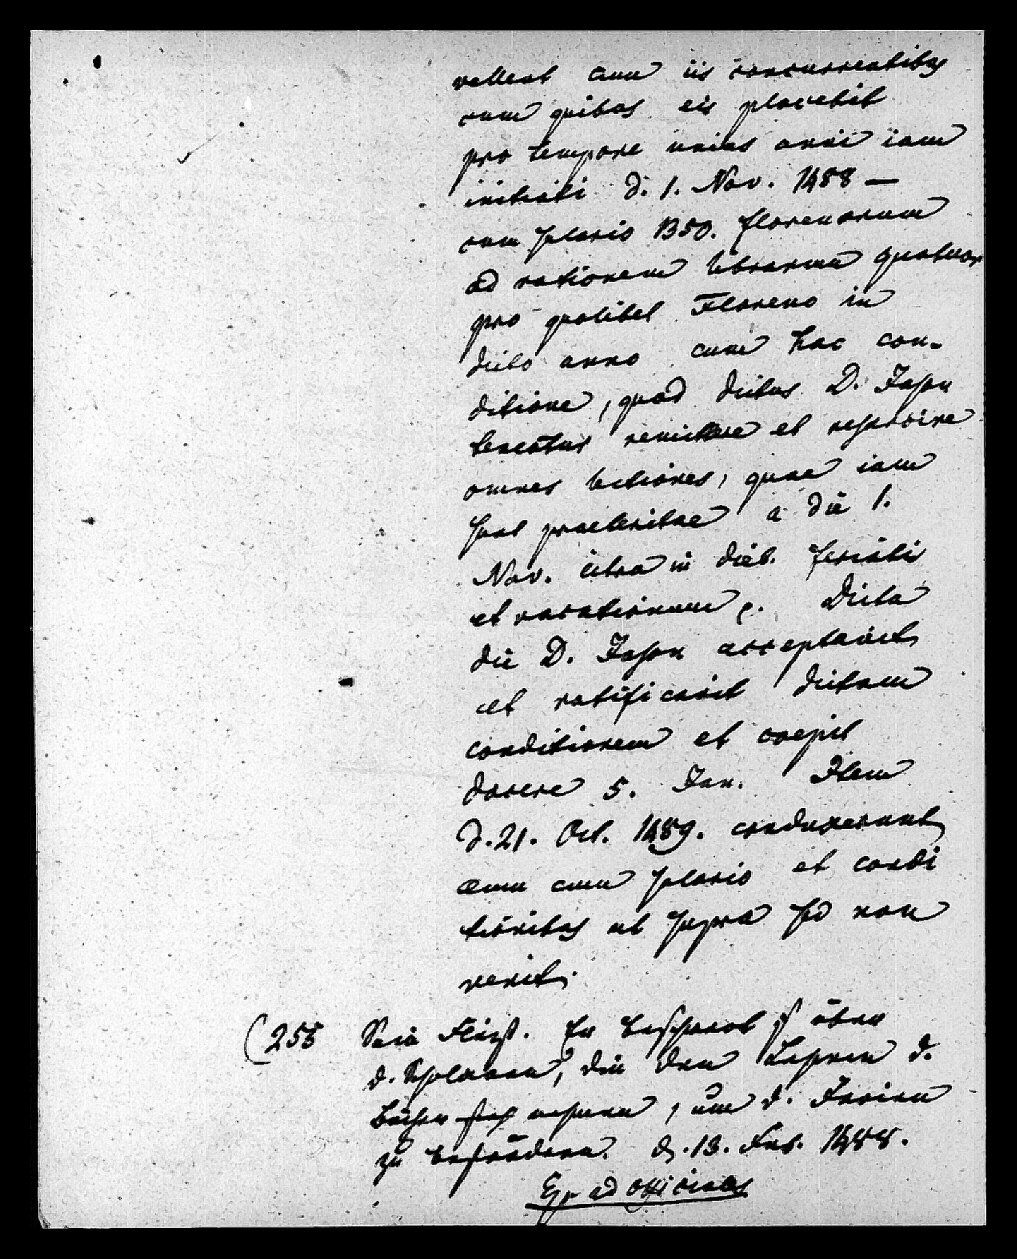 vellent cum iis concurrentibus
cum quibus eis placebit
pro tempore unius anni iam
initiati d. 1. Nov. 1488 —
cum salario 1350. florenorum
ad rationem librarum quatuor
pro quolibet Floreno in
dicto anno cum hac con-
ditione, quod dictus D. Jason
teneatur remittere et
omnes lectiones, quae iam
sunt praeteritae a die 1.
Nov. citra in dieb. feriati
et vacationum p. Dicta
die D. Jason acceptavit
et ratificavit dictam
conditionem et coepit
docere 5. Jan. Item
d. 21. Oct. 1489. conduxerunt
eum cum salario et condi
tionibus ut supra sed non
venit.
(258 Sein Fleiß. Er über
d. Scholaren, die den d.
um d. Ferien
zu d. 13. Feb. 1488.
Ep. ad officiales